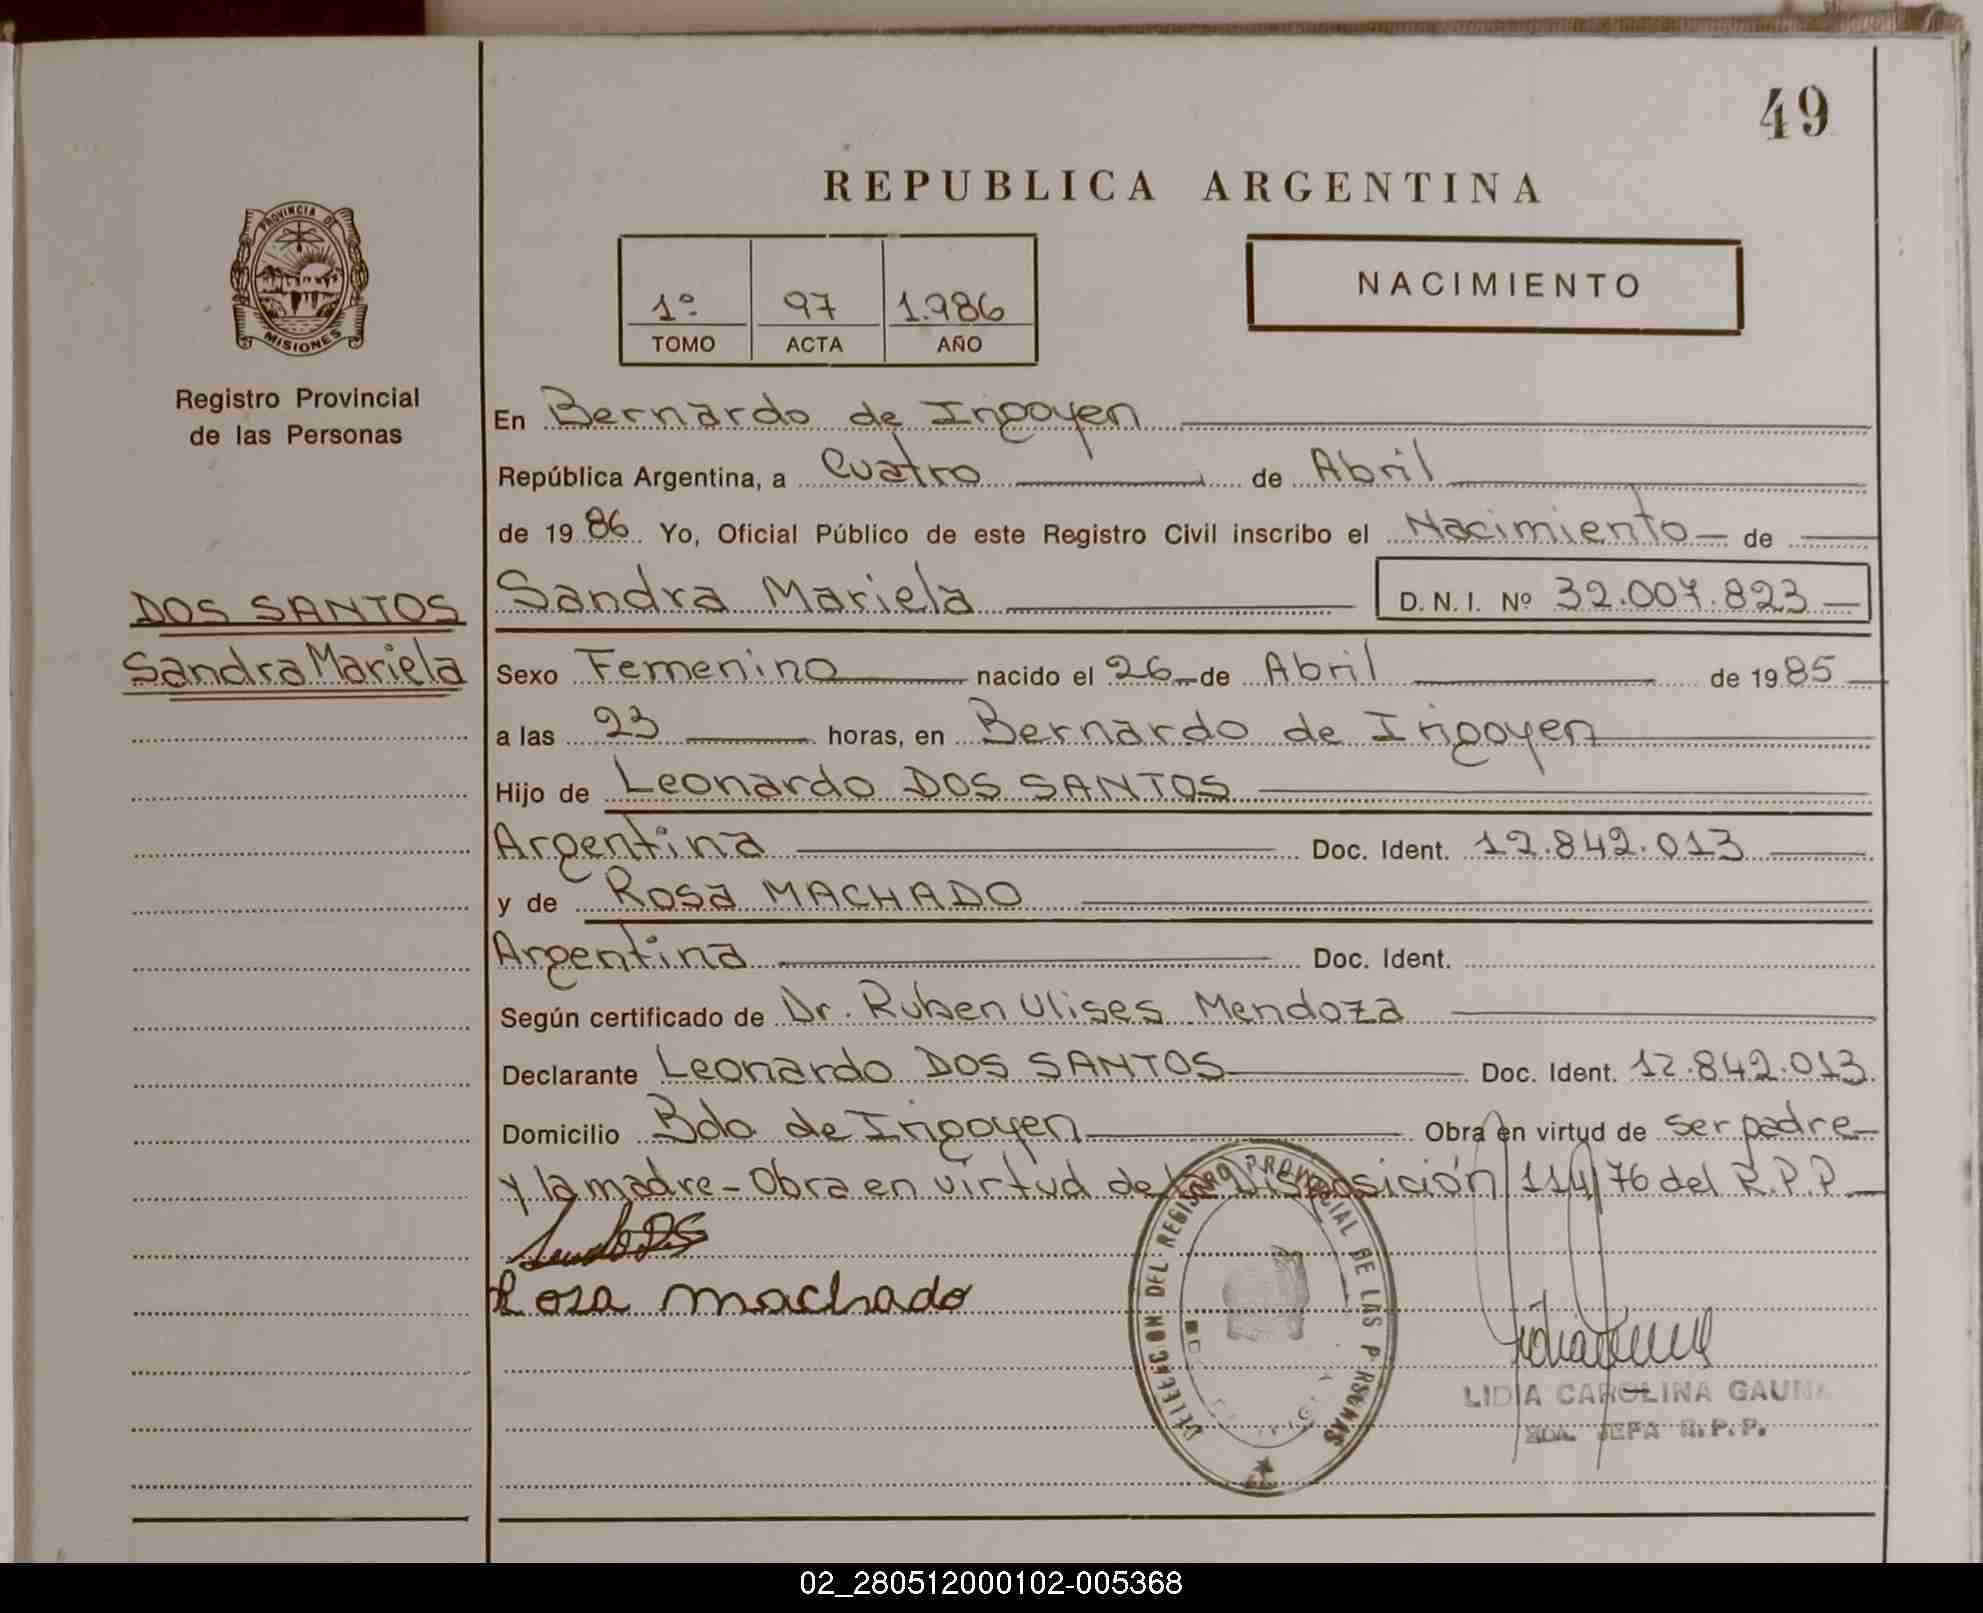 49
REPUBLICA ARGENTINA
PROVINCIA DE
MISIONES
Registro Provincial
de las Personas
1º 97 1.986
TOMO ACTA AÑO
NACIMIENTO
En Bernardo de Irigoyen
República Argentina, a Cuatro de Abril
de 1986 Yo, Oficial Público de este Registro Civil inscribo el Nacimiento de
DOS SANTOS
Sandra Mariela
Sandra Mariela D. N. I. Nº 32.007.823
Sexo Femenino nacido el 26 de Abril de 1985
a las 23 horas, en Bernardo de Irigoyen
Hijo de Leonardo DOS SANTOS
Argentina Doc. Ident. 12.842.013
y de Rosa MACHADO
Argentina Doc. Ident.
Según certificado de Dr. Ruben Ulises Mendoza
Declarante Leonardo DOS SANTOS Doc. Ident. 12.842.013
Domicilio Bdo. de Irigoyen Obra en virtud de ser padre
y la madre - Obra en virtud de la Disposición 114/76 del R.P.P.
Rosa machado
DELEGACION DEL REGISTRO PROVINCIAL DE LAS PERSONAS
LIDIA CAROLINA GAUNA
JEFA R.P.P.
02_280512000102-005368